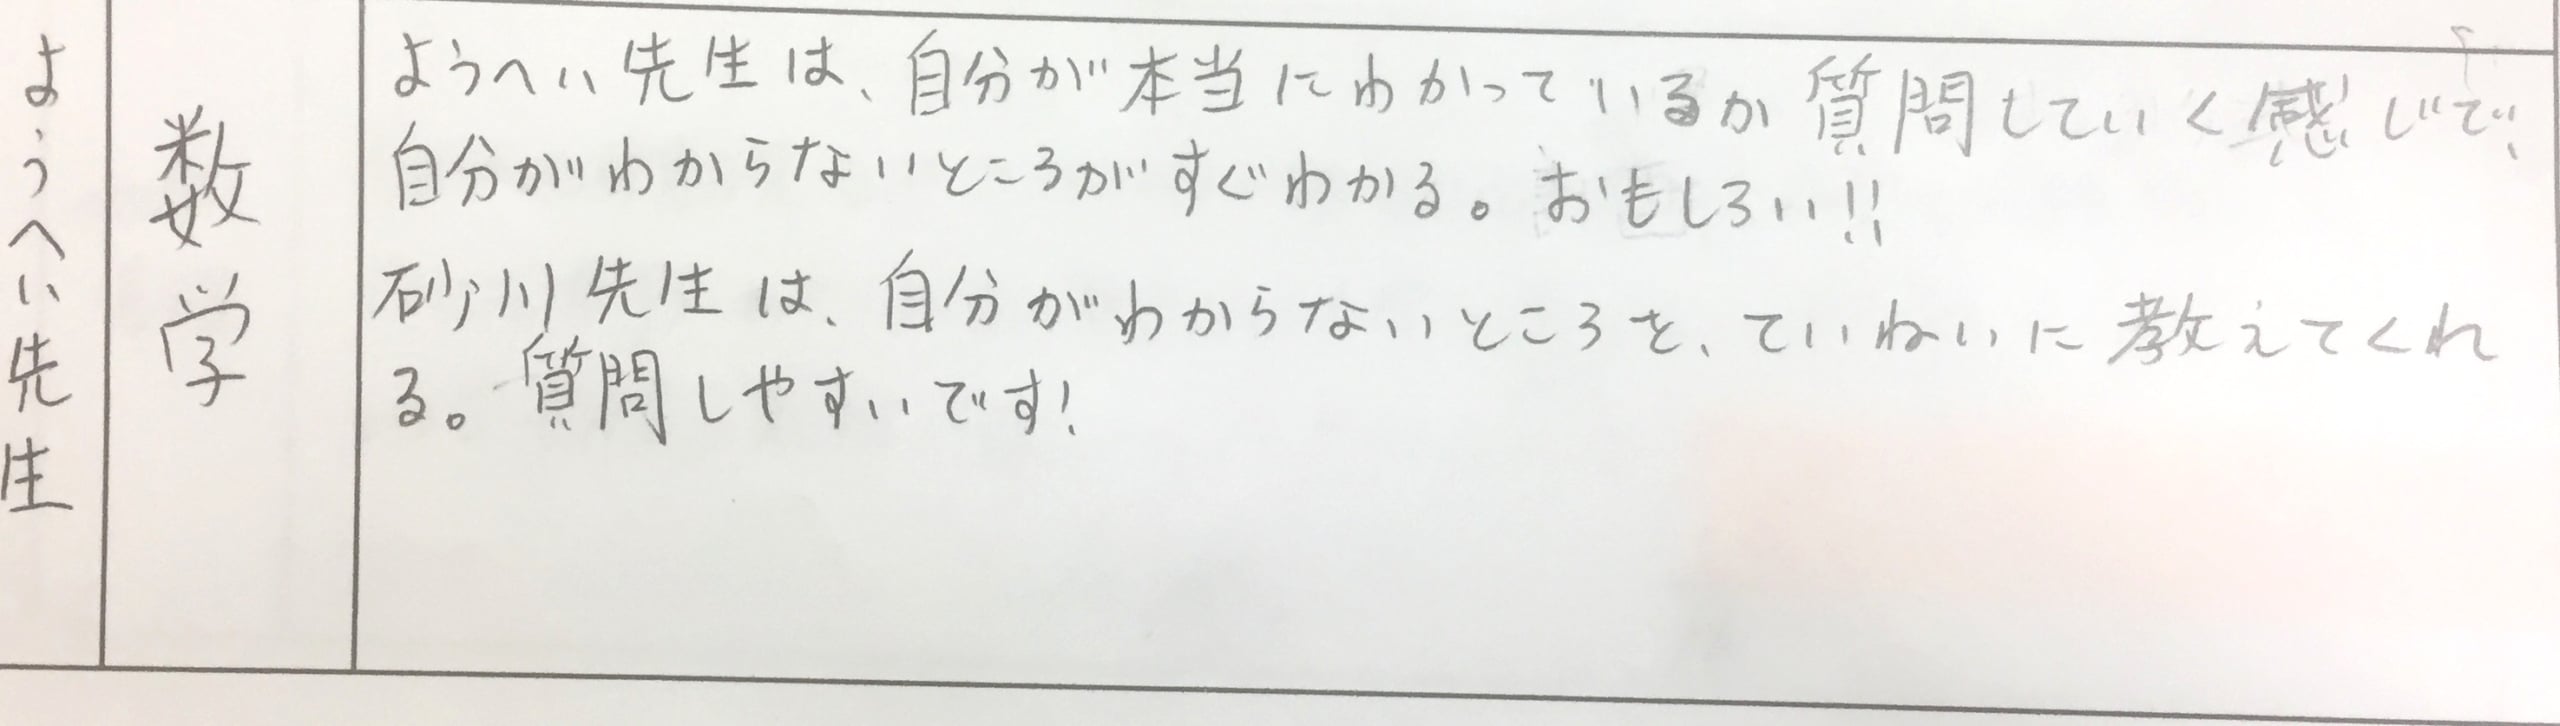 ようへい先生
数学
ようへい先生は、自分が本当にわかっているか質問していく感じで、
自分がわからないところがすぐわかる。おもしろい!!
砂川先生は、自分がわからないところを、ていねいに教えてくれ
る。質問しやすいです!